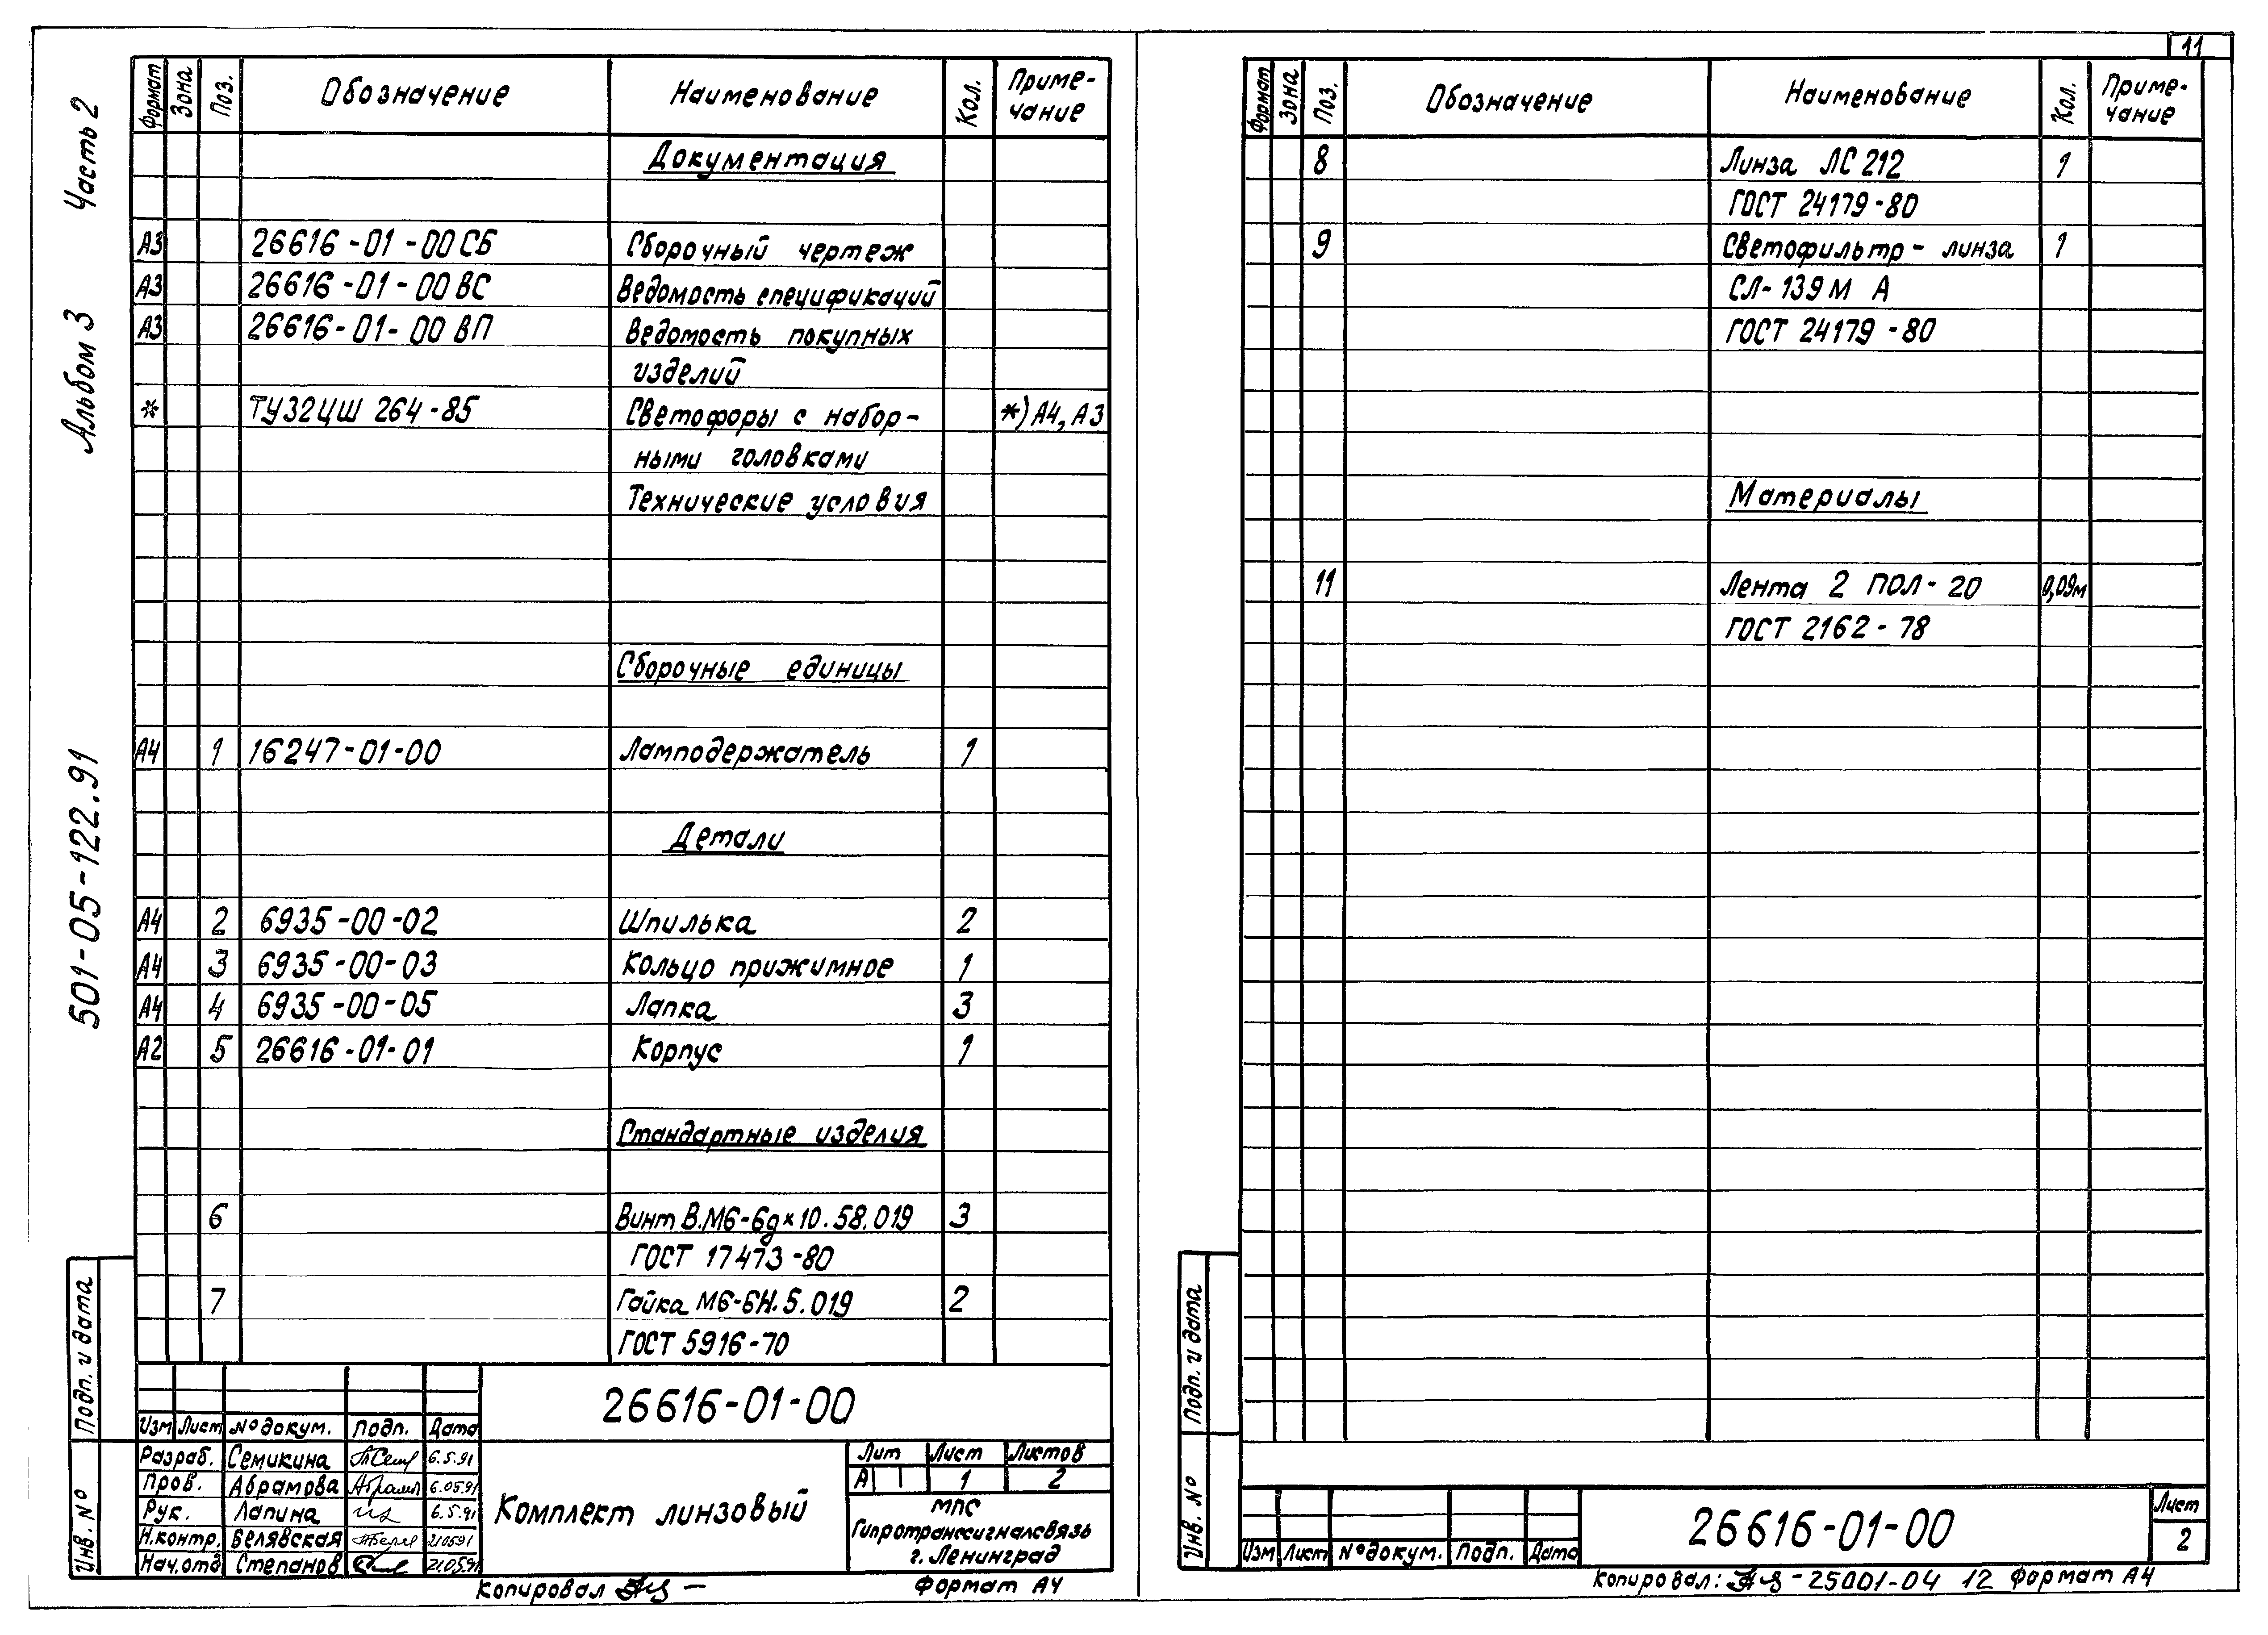 11
501-05-122.91 Альбом 3 Часть 2
Формат Зона Поз. Обозначение Наименование Кол. Приме-
чание
Документация
А3 26616-01-00СБ Сборочный чертеж
А3 26616-01-00ВС Ведомость спецификаций
А3 26616-01-00ВП Ведомость покупных
изделий
* ТУ32ЦШ 264-85 Светофоры с набор- *) А4, А3
ными головками
Технические условия
Сборочные единицы
А4 1 16247-01-00 Ламподержатель 1
Детали
А4 2 6935-00-02 Шпилька 2
А4 3 6935-00-03 Кольцо прижимное 1
А4 4 6935-00-05 Лапка 3
А2 5 26616-01-01 Корпус 1
Стандартные изделия
6 Винт В.М6-6g×10.58.019 3
ГОСТ 17473-80
7 Гайка М6-6Н.5.019 2
ГОСТ 5916-70
Подп. и дата
Инв. №
26616-01-00
Изм Лист № докум. Подп. Дата
Разраб. Семикина 6.5.91
Пров. Абрамова 6.05.91
Рук. Лапина 6.5.91
Н.контр. Белявская 210591
Нач.отд Степанов 21.05.91
Комплект линзовый
Лит Лист Листов
А 1 2
МПС
Гипротранссигналсвязь
г. Ленинград
Копировал Формат А4
Формат Зона Поз. Обозначение Наименование Кол. Приме-
чание
8 Линза ЛС 212 1
ГОСТ 24179-80
9 Светофильтр - линза 1
СЛ-139М А
ГОСТ 24179-80
Материалы
11 Лента 2 ПОЛ-20 0,09м
ГОСТ 2162-78
Подп. и дата
Инв. №
Изм Лист № докум. Подп. Дата
26616-01-00
Лист
2
Копировал: 25001-04 12 Формат А4